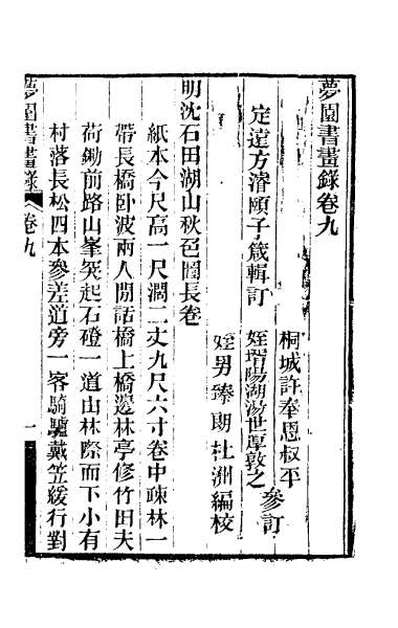 夢園書畫錄卷九
定遠方濬頤子箴輯訂
桐城許奉恩叔平
姪壻陽湖湯世厚敦之
參訂
姪男臻朗杜洲編校
明沈石田湖山秋色圖長卷
紙本今尺高一尺濶二丈九尺六寸卷中疎林一
帶長橋臥波兩人閒話橋上橋邊林亭修竹田夫
荷鋤前路山峯突起石磴一道由林際而下小有
村落長松四本參差道旁一客騎驢戴笠緩行對
夢園書畫錄 卷九 一